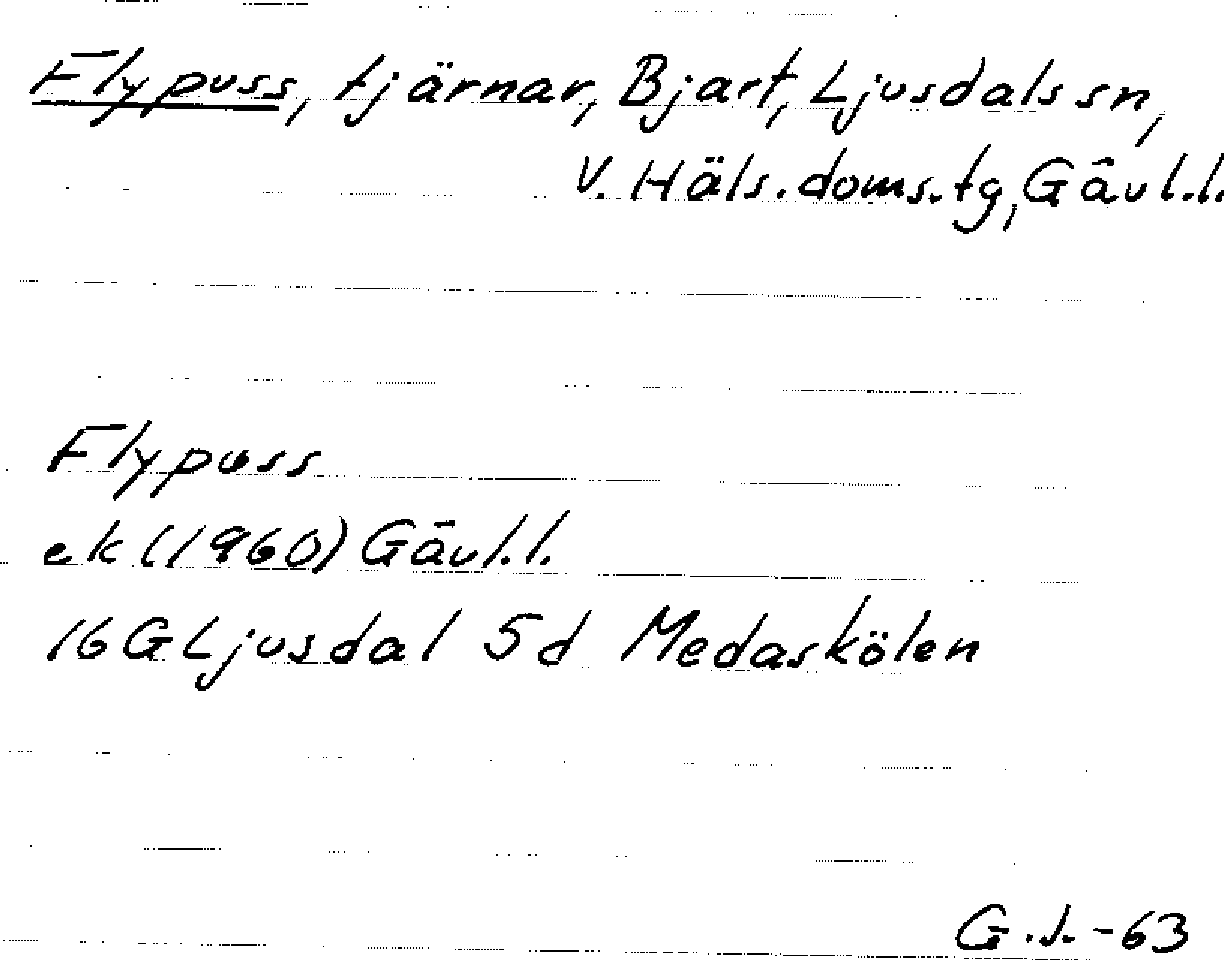 Flypuss, tjärnar, Bjart, Ljusdals sn,
V. Häls. doms. tg, Gävl.l.
Flypuss
ek (1960) Gävl.l.
16G Ljusdal 5d Medaskölen
G.J.-63